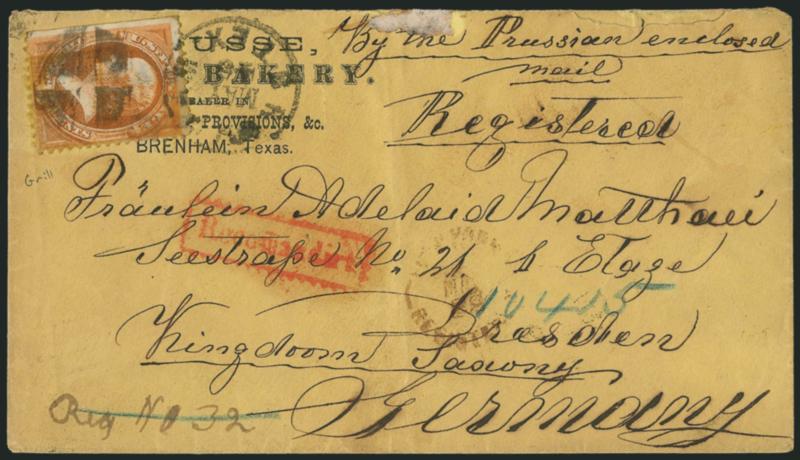 USSE,
BAKERY.
EALER IN
PROVISIONS, &c.
BRENHAM, Texas.
By the Prussian enclosed
mail
Registered
Grill
Fräulein Adelaid Matthaei
Seestraße No 21 Etage
Recomandirt
10415
Dresden
Kingdoom Saxony
Germany
Reg No 32